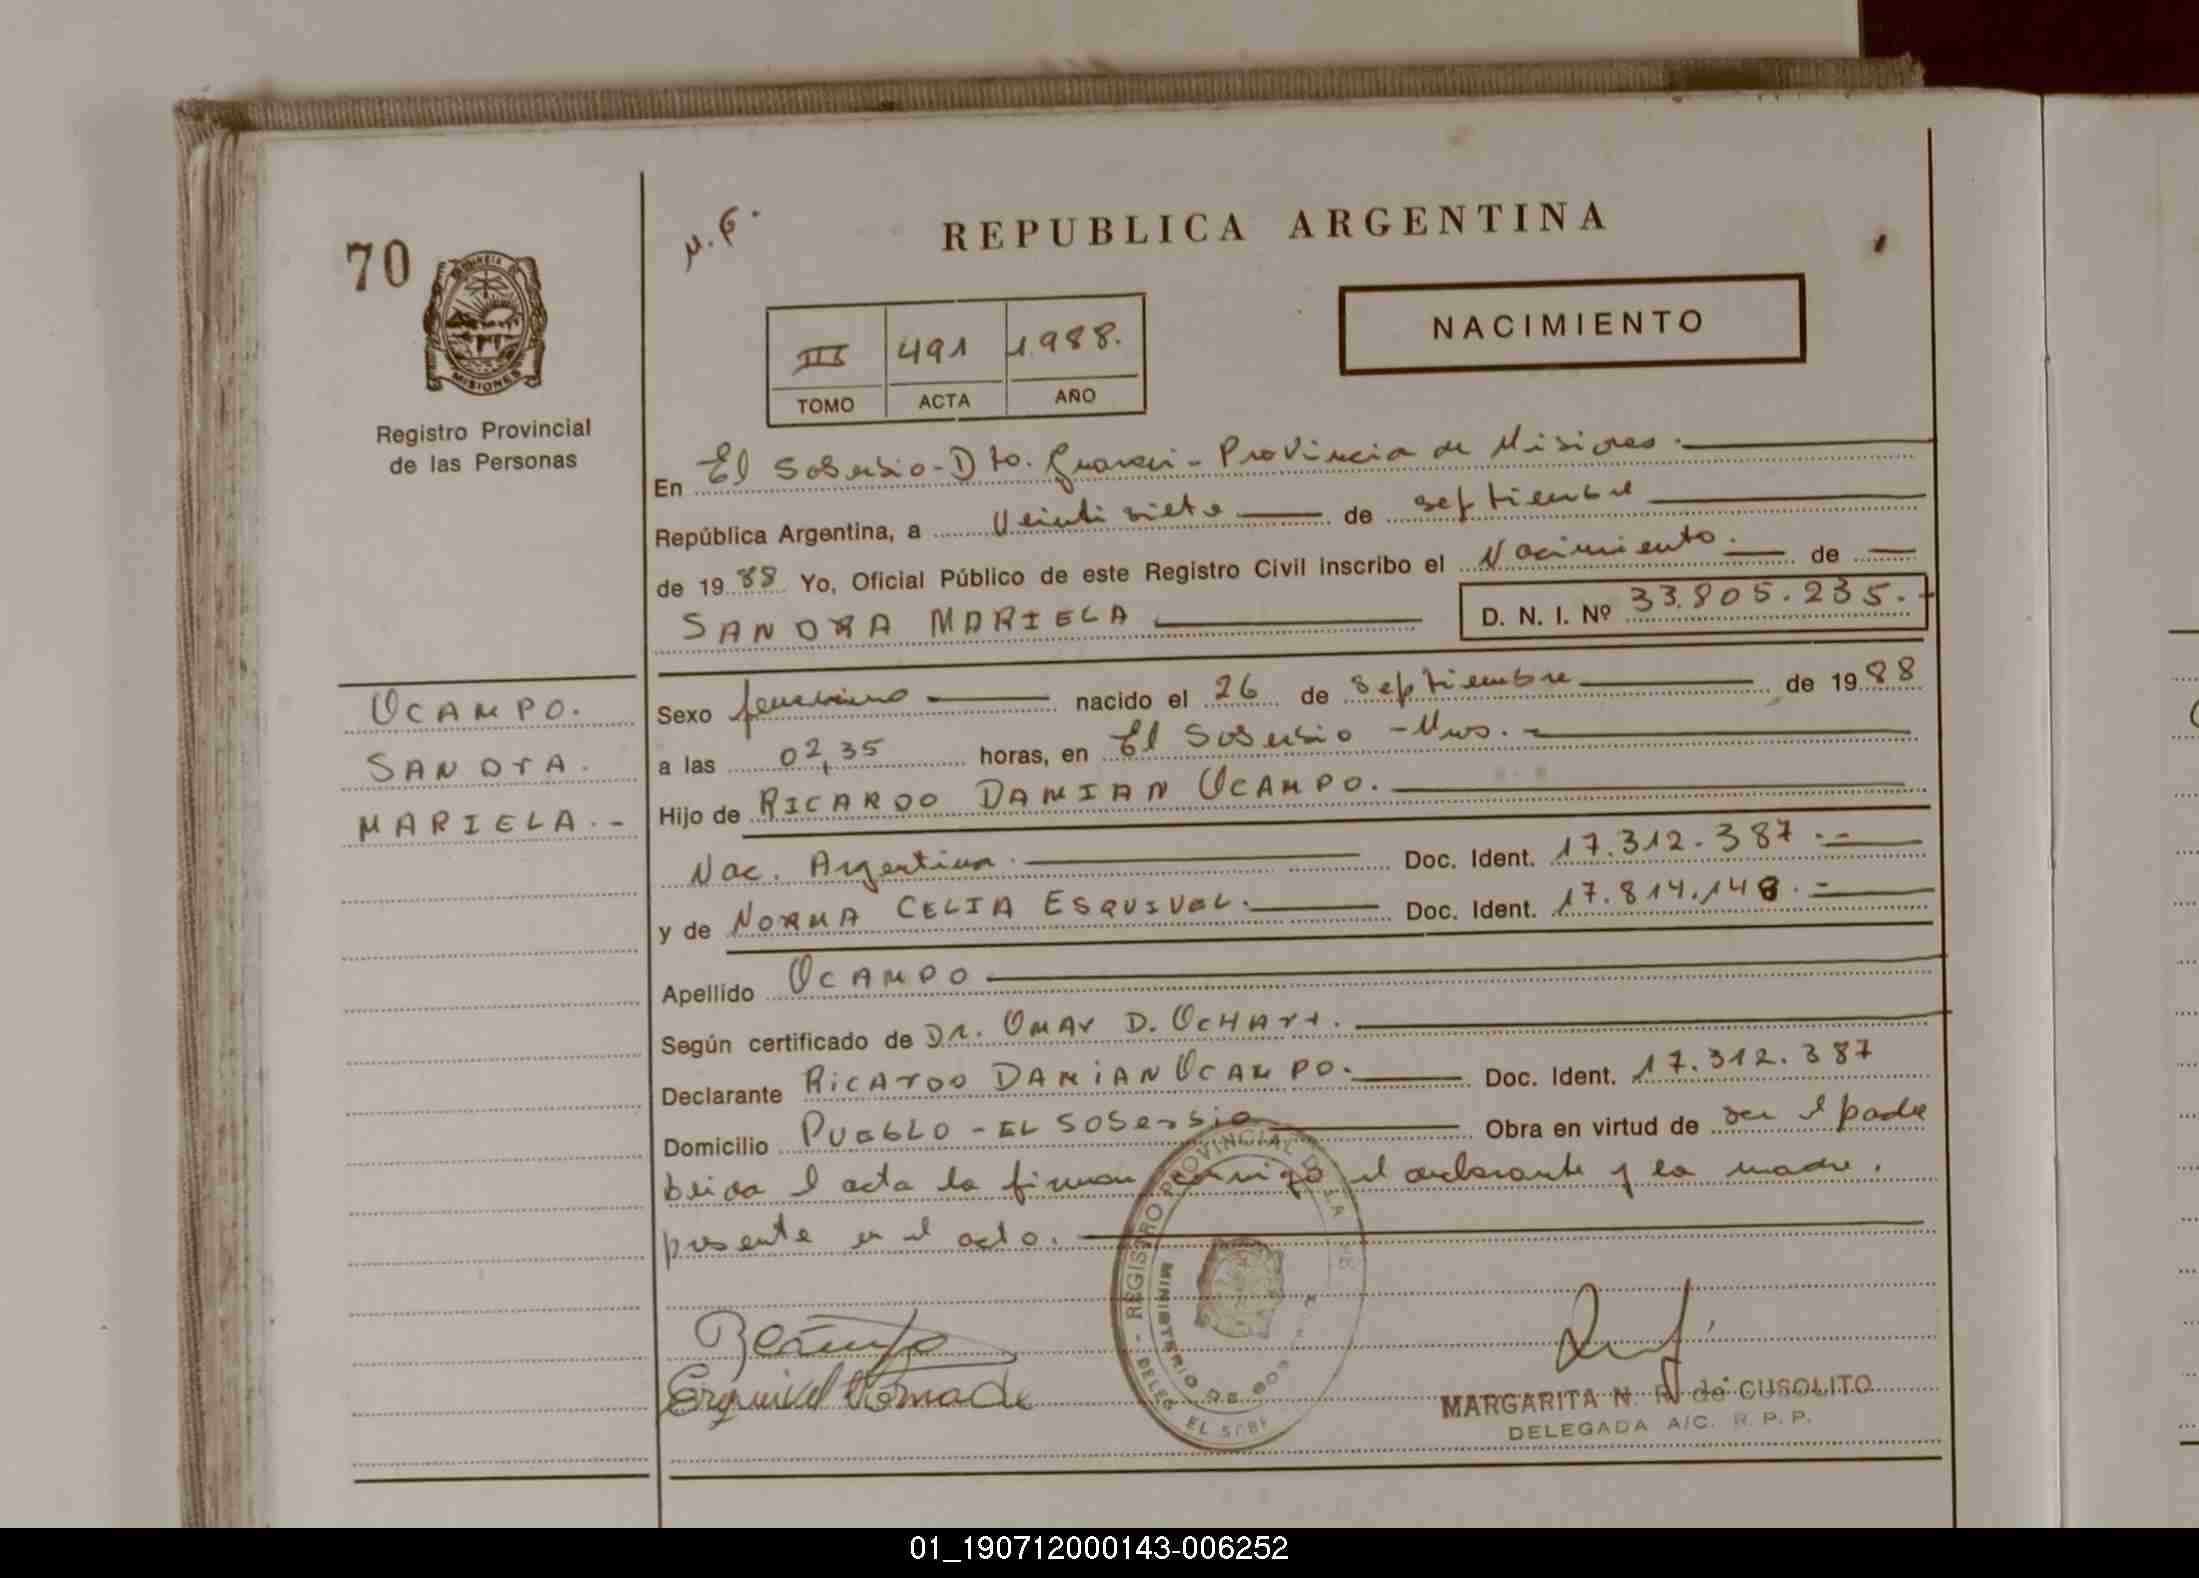 70
PROVINCIA DE
MISIONES
Registro Provincial
de las Personas
REPUBLICA ARGENTINA
NACIMIENTO
III 491 1988.
TOMO ACTA AÑO
En El Soberbio - Dto. Guarani - Provincia de Misiones.
República Argentina, a Veinti siete de septiembre
de 1988 Yo, Oficial Público de este Registro Civil inscribo el Nacimiento. de
SANDRA MARIELA D. N. I. Nº 33.805.235.-
OCAMPO.
SANDRA.
MARIELA.-
Sexo femenino nacido el 26 de septiembre de 1988
a las 02,35 horas, en El Soberbio - Mnes.
Hijo de RICARDO DAMIAN OCAMPO.
Nac. Argentina. Doc. Ident. 17.312.387.-
y de NORMA CELIA ESQUIVEL. Doc. Ident. 17.814.148.-
Apellido OCAMPO
Según certificado de Dr. OMAR D. OCHART.
Declarante RICARDO DAMIAN OCAMPO. Doc. Ident. 17.312.387
Domicilio PUEBLO - EL SOBERBIO Obra en virtud de ser el padre
leida el acta la firman conmigo el declarante y la madre.
presente en el acto.
- REGISTRO PROVINCIAL DE LA
MINISTERIO DE GOB
DELEG. EL SOBE
ROcampo
Esquivel Norma de
MARGARITA N. R. de CUSOLITO
DELEGADA A/C. R. P. P.
01_190712000143-006252